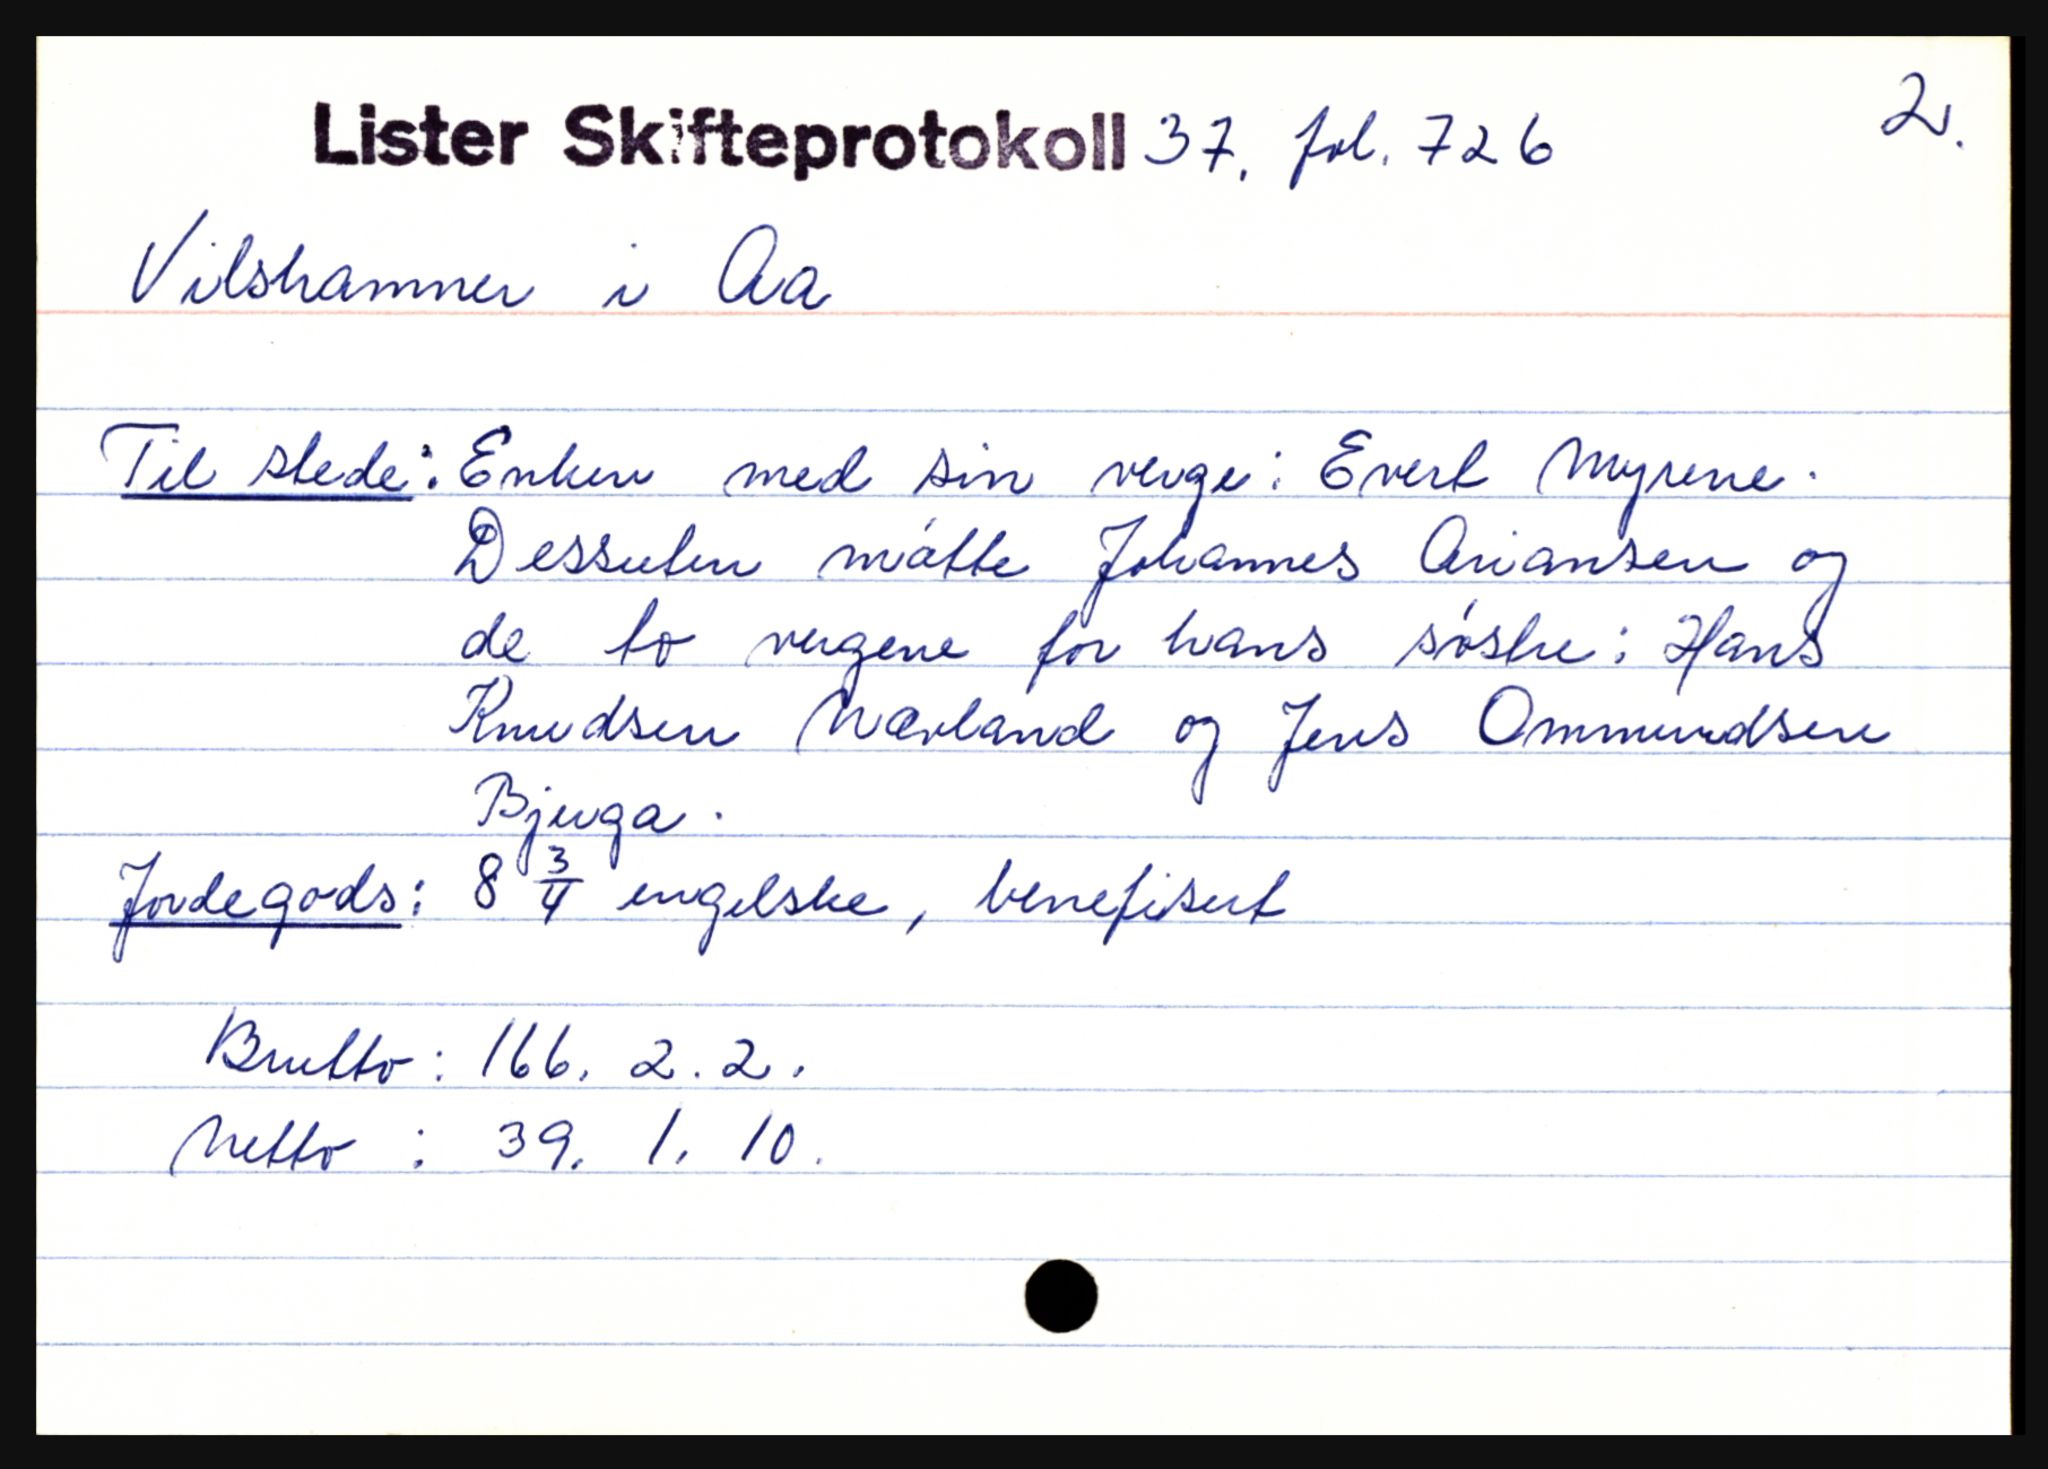 2.
Lister Skifteprotokoll 37, fol. 726
Vilshammer i Aa
Til stede: Enken med sin verge: Evert Myrene.
Dessuten møtte Johannes Ariansen og
de to vergene for hans søske: Hans
Knudsen Nærland og Jens Ommundsen
Bjerga.
Jordegods: 8 3/4 engelske, benefisert
Brutto: 166. 2. 2.
Netto : 39. 1. 10.